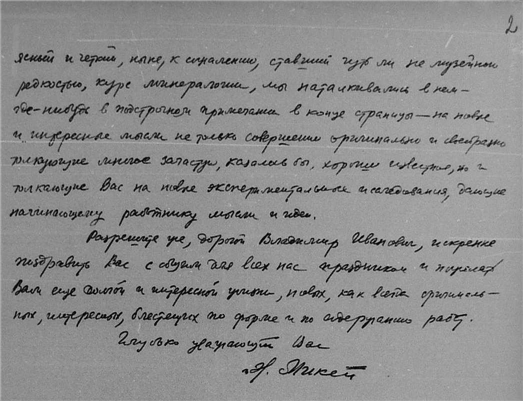 2
ясный и четкий, ныне, к сожалению, ставший чуть ли не музейной
редкостью, курс минералогии, мы наталкивались в нем -
где-нибудь в подстрочном примечании в конце страницы - на новые
и интересные мысли не только совершенно оригинально и своеобразно
толкующие многое зачастую, казалось бы, хорошо известное, но и
толкающие Вас на новые экспериментальные исследования, дающие
начинающему работнику мысли и идеи.
Разрешите же, дорогой Владимир Иванович, искренне
поздравить Вас с общим для всех нас праздником и пожелать
Вам еще долгой и интересной жизни, новых, как всегда оригиналь-
ных, интересных, блестящих по форме и по содержанию работ.
Глубоко уважающий Вас